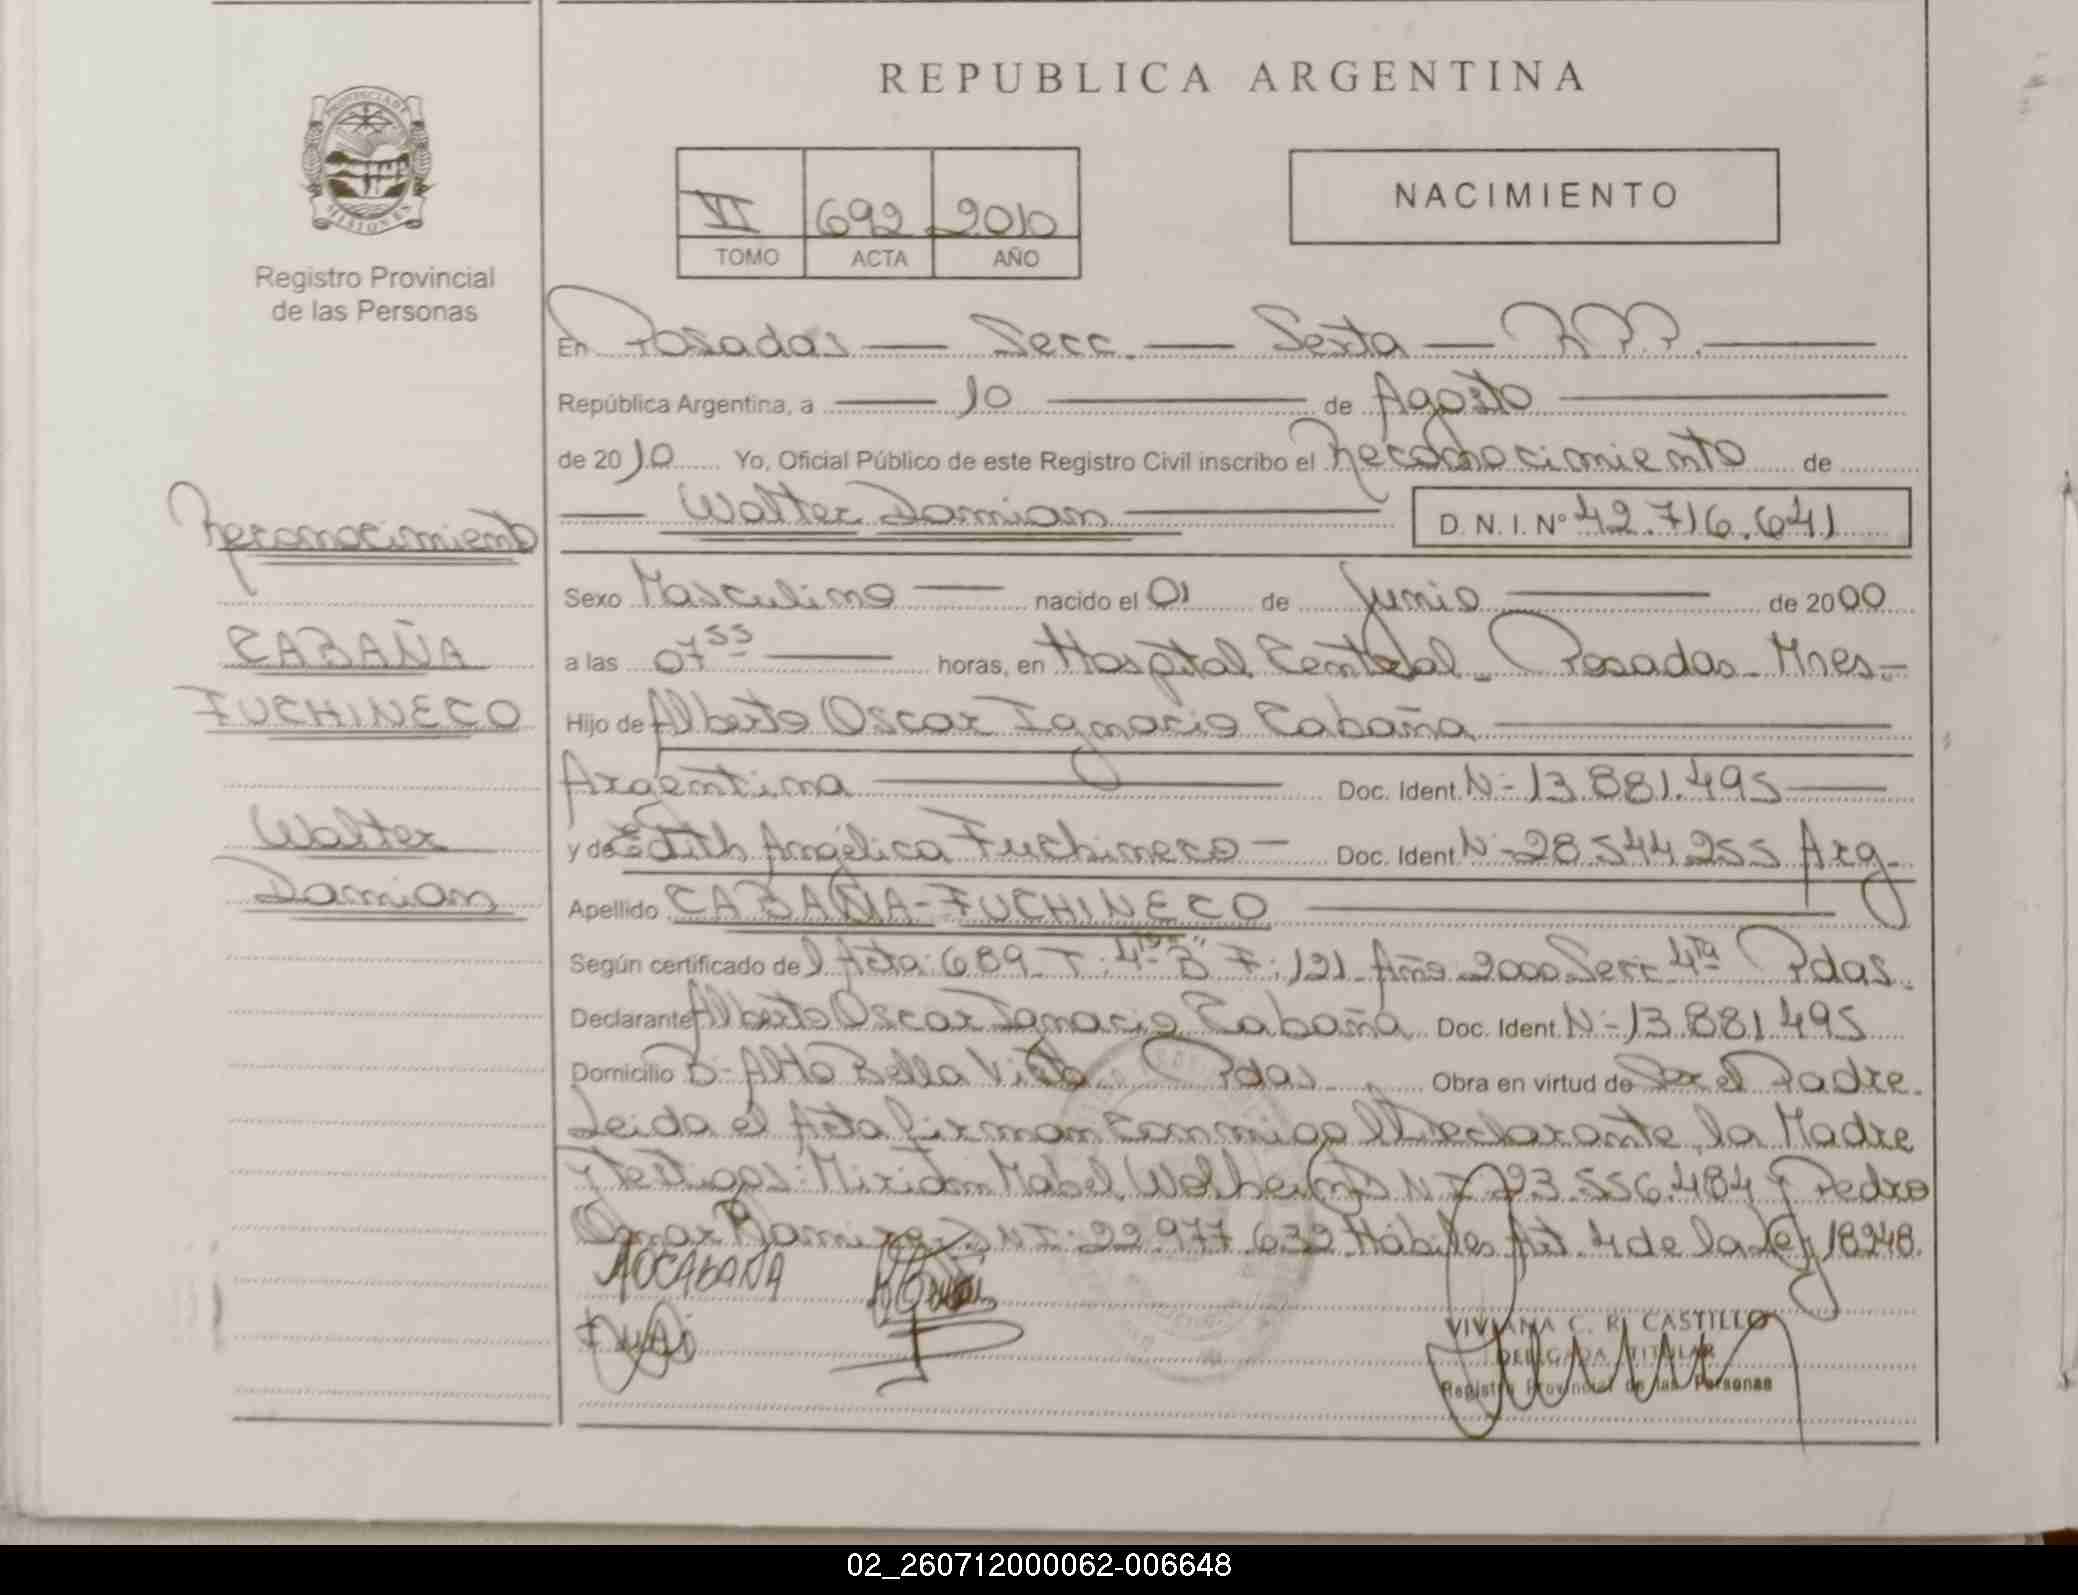 REPUBLICA ARGENTINA
PROVINCIA DE
MISIONES
Registro Provincial
de las Personas
VI 692 2010
TOMO ACTA AÑO
NACIMIENTO
En Posadas — Secc. — Sexta — R.P.P. —
República Argentina, a — 10 — de Agosto —
de 2010 Yo, Oficial Público de este Registro Civil inscribo el Reconocimiento de
— Walter Damian — D.N.I. Nº 42.716.641
Reconocimiento
CABAÑA
FUCHINECO
Walter
Damian
Sexo Masculino — nacido el 01 de Junio — de 2000
a las 07 55 — horas, en Hospital Central - Posadas - Mnes -
Hijo de Alberto Oscar Ignacio Cabaña —
Argentina — Doc. Ident. N- 13.881.495 —
y de Edith Angélica Fuchineco — Doc. Ident N- 28.544.255 Arg -
Apellido CABAÑA - FUCHINECO —
Según certificado del Acta: 689 T: 4 "B" F: 121 Año 2000 Secc 4ta Pdas.
Declarante Alberto Oscar Ignacio Cabaña Doc. Ident. N- 13.881.495
Domicilio B- Alto Bella Vista Pdas. Obra en virtud de Ser el Padre.
Leida el Acta firman conmigo el Declarante, la Madre
y testigos: Miriam Mabel 23.556.484 y Pedro
Omar Ramirez 22.977.632 Hábiles Art. 4 de la Ley 18248.
AOCABAÑA
VIVIANA C. R. CASTILLO
DELEGADA TITULAR
Registro Provincial de las Personas
02_260712000062-006648